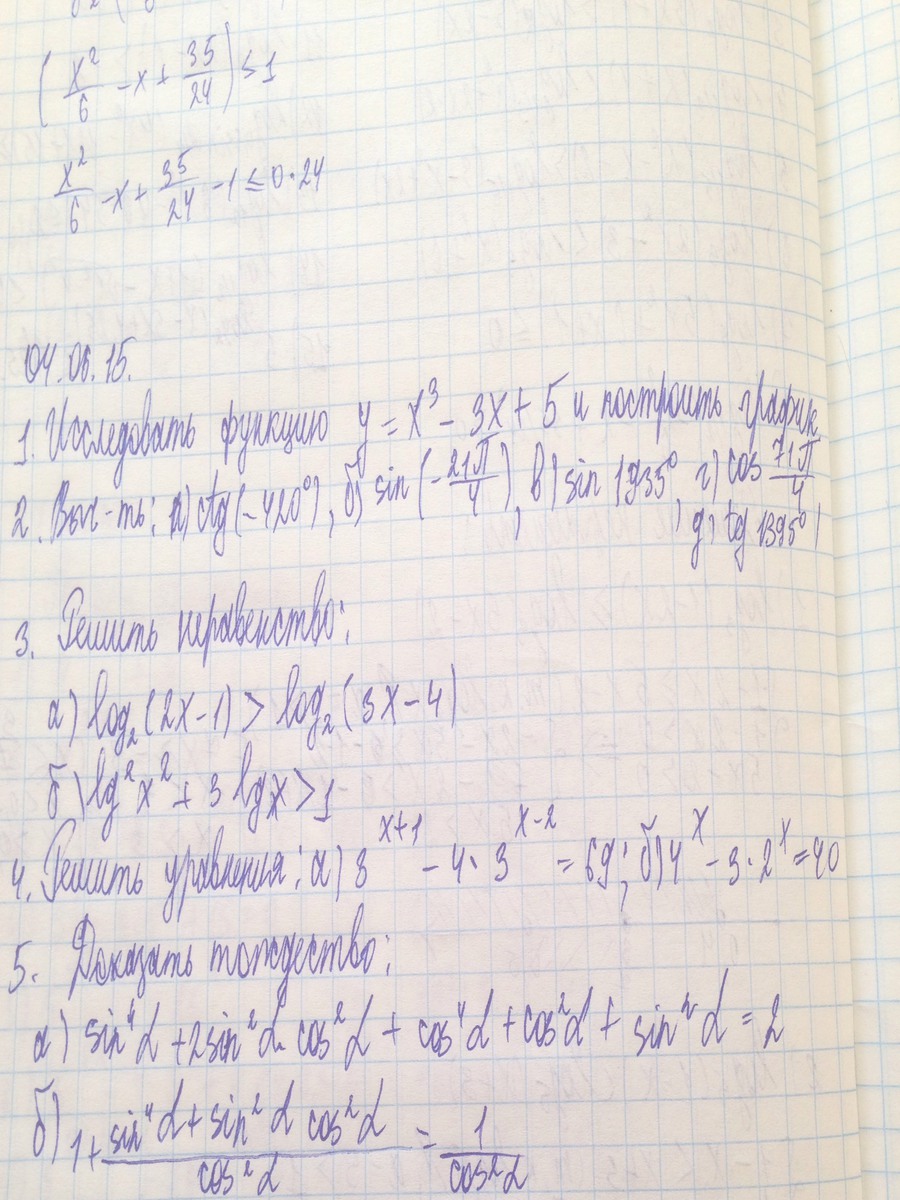 (x²/6 - x + 35/24) ≤ 1
x²/6 - x + 35/24 - 1 ≤ 0 · 24
04.06.15.
1. Исследовать функцию y = x³ - 3x + 5 и построить график
2. Выч-ть: а) ctg(-420°), б) sin(-21π/4), в) sin 1935°, г) cos 71π/4
, д) tg 1395°
3. Решить неравенство:
а) log₂(2x-1) > log₂(3x-4)
б) lg²x² + 3 lgx > 1
4. Решить уравнения: а) 3^(x+1) - 4 · 3^(x-2) = 69; б) 4^x - 3 · 2^x = 40
5. Доказать тождество:
а) sin⁴α + 2sin²α cos²α + cos⁴α + cos²α + sin²α = 2
б) 1 + (sin⁴α + sin²α cos²α)/cos²α = 1/cos²α